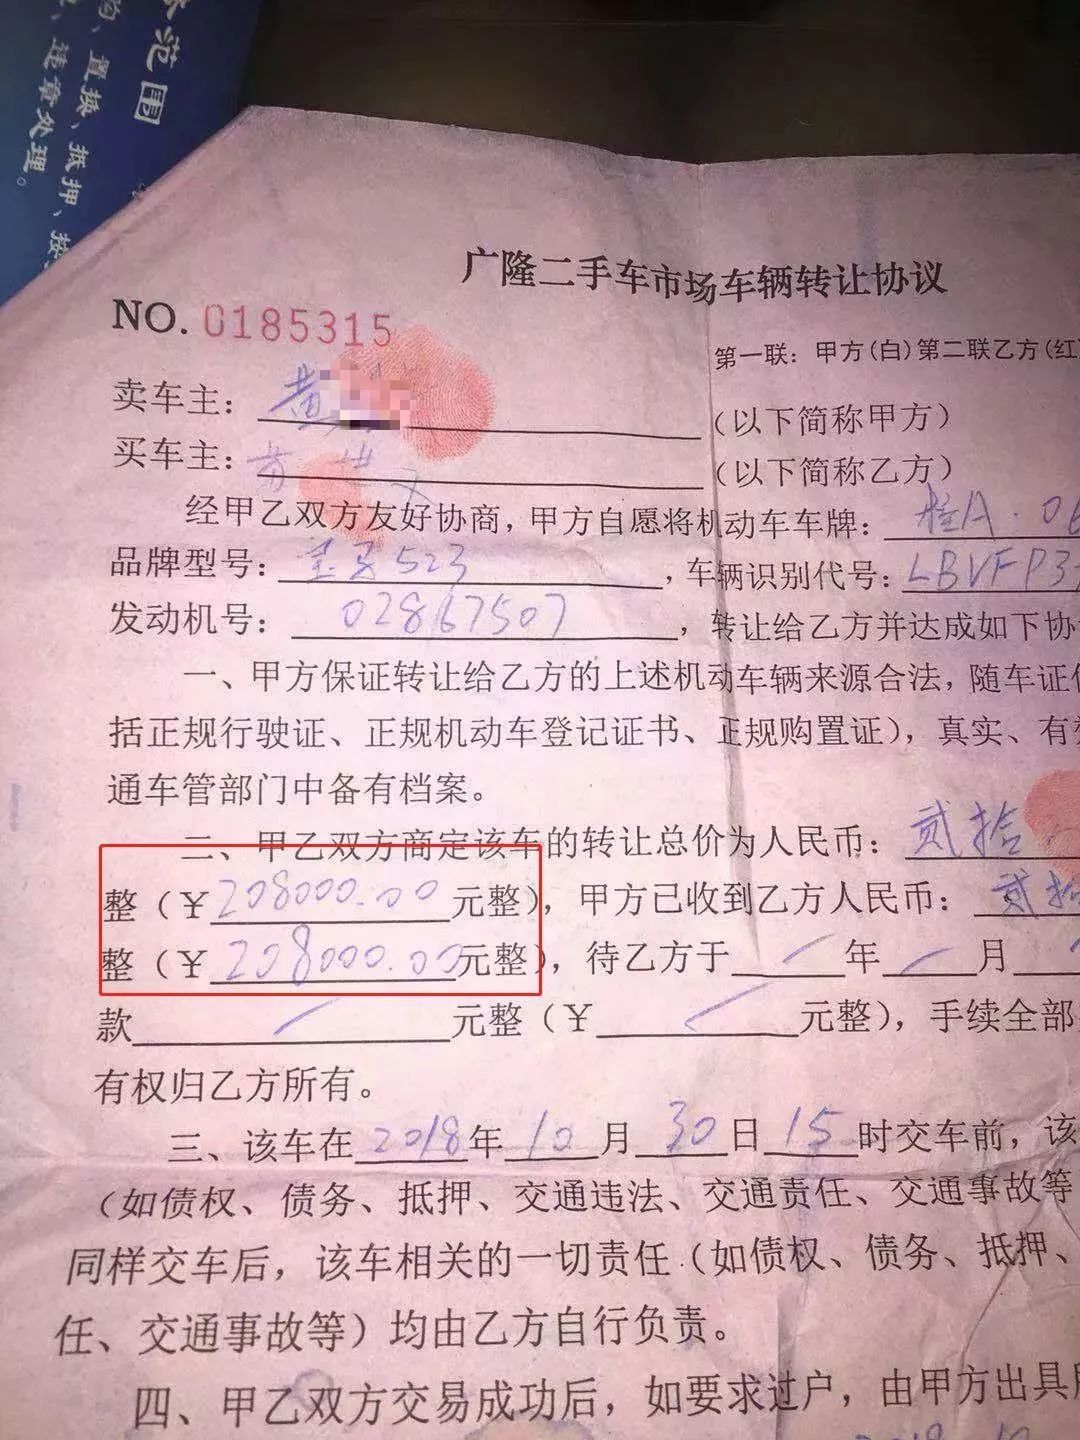 范围
、置换、抵押、按
、违章处理。
广隆二手车市场车辆转让协议
NO. 0185315
第一联：甲方(白)第二联乙方(红
卖车主：黄
（以下简称甲方）
买车主：
（以下简称乙方）
经甲乙双方友好协商，甲方自愿将机动车车牌：桂A·06
品牌型号：宝马523，车辆识别代号：LBVFP3
发动机号：02867507，转让给乙方并达成如下协
一、甲方保证转让给乙方的上述机动车辆来源合法，随车证
括正规行驶证、正规机动车登记证书、正规购置证），真实、有
通车管部门中备有档案。
二、甲乙双方商定该车的转让总价为人民币：贰拾
整（¥208000.00元整），甲方已收到乙方人民币：贰拾
整（¥208000.00元整），待乙方于/年/月
款/元整（¥/元整），手续全部
有权归乙方所有。
三、该车在2018年10月30日15时交车前，该
（如债权、债务、抵押、交通违法、交通责任、交通事故等
同样交车后，该车相关的一切责任（如债权、债务、抵押、
任、交通事故等）均由乙方自行负责。
四、甲乙双方交易成功后，如要求过户，由甲方出具